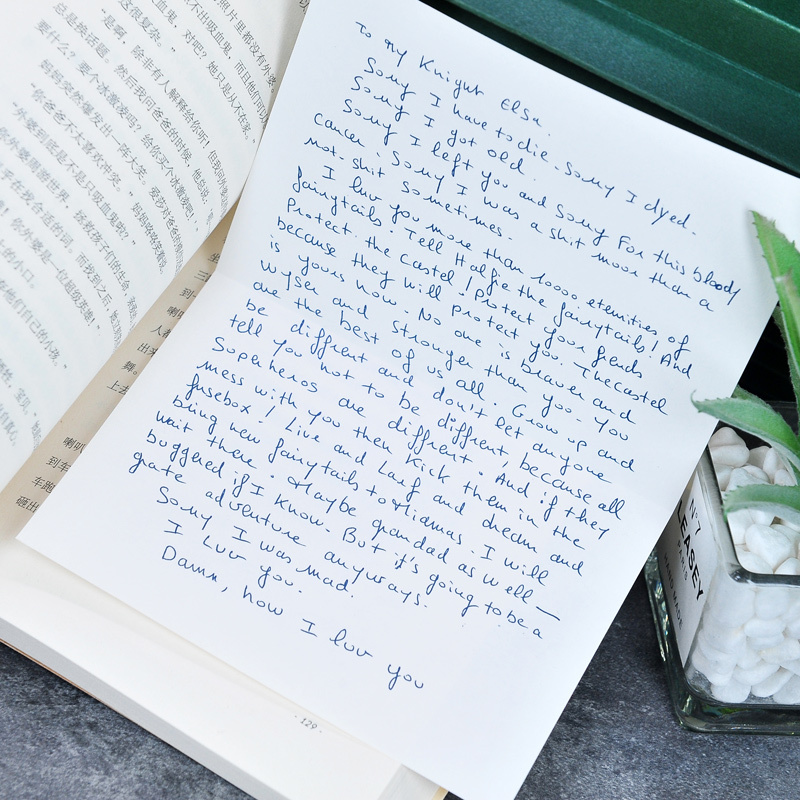 照片里都没有外婆。
血鬼，对吧？她只是从不在家。
总是换话题。然后我问爸爸的时候，他总说，
要什么？要个冰激凌吗？给你买个冰激凌吧！
妈妈突然爆发出一阵大笑。
“你爸爸不太喜欢冲突。”妈妈咯咯笑着说。
“外婆到底是不是只吸血鬼呢？”
To my Knight Elsa.
Sorry I have to die. Sorry I dyed.
Sorry I got old.
Sorry I left you and Sorry For this bloody
cancer. Sorry I was a shit more than a
not-shit sometimes.
I luv you more than 10000 eternities of
fairytails! Tell Halfie the fairytails! And
Protect the castel! Protect your friends
because they will protect you. The castel
is yours now. No one is braver and
wyser and stronger than you. You
are the best of us all. Grow up and
be diffrent and don't let anyone
tell you not to be diffrent, because all
Superheros are diffrent. And if they
mess with you then kick them in the
fusebox! Live and Larf and dream and
bring new fairytails to Miamas. I will
wait there. Maybe grandad as well —
buggered if I know. But it's going to be a
grate adventure anyways.
Sorry I was mad.
I luv you.
Damn, how I luv you
129
N°7
LEASEY